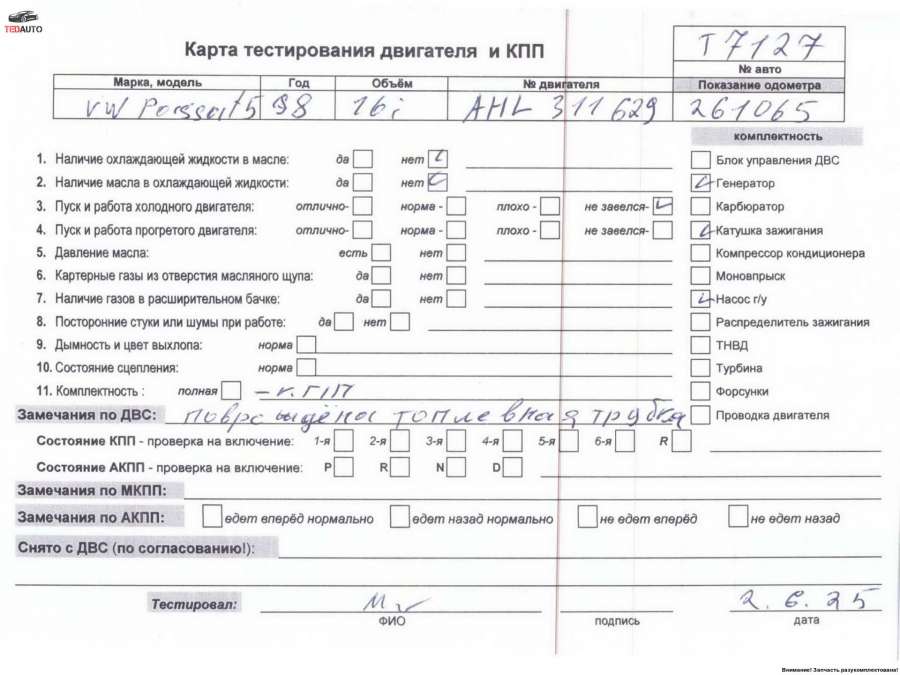 TEDAUTO
Карта тестирования двигателя и КПП
T7127
№ авто
Марка, модель Год Объём № двигателя Показание одометра
VW Passat 5 98 16i AHL 311629 261065
комплектность
1. Наличие охлаждающей жидкости в масле: да нет
Блок управления ДВС
2. Наличие масла в охлаждающей жидкости: да нет
Генератор
3. Пуск и работа холодного двигателя: отлично- норма - плохо - не завелся-
Карбюратор
4. Пуск и работа прогретого двигателя: отлично- норма - плохо - не завелся-
Катушка зажигания
5. Давление масла: есть нет
Компрессор кондиционера
6. Картерные газы из отверстия масляного щупа: да нет
Моновпрыск
7. Наличие газов в расширительном бачке: да нет
Насос г/у
8. Посторонние стуки или шумы при работе: да нет
Распределитель зажигания
9. Дымность и цвет выхлопа: норма
ТНВД
10. Состояние сцепления: норма
Турбина
11. Комплектность : полная
Форсунки
Замечания по ДВС: топливная трубка
Проводка двигателя
Состояние КПП - проверка на включение: 1-я 2-я 3-я 4-я 5-я 6-я R
Состояние АКПП - проверка на включение: P R N D
Замечания по МКПП:
Замечания по АКПП: едет вперёд нормально едет назад нормально не едет вперёд не едет назад
Снято с ДВС (по согласованию!):
Тестировал: 2.6.25
ФИО подпись дата
Внимание! Запчасть разукомплектована!